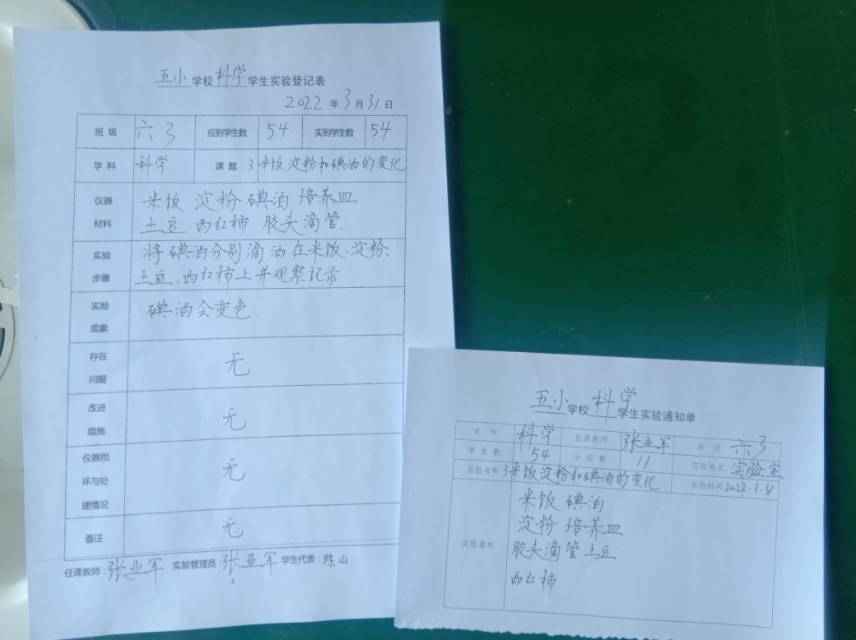 五小学校科学学生实验登记表
2022年3月31日
班级 六3 应到学生数 54 实到学生数 54
学科 科学 课题 3米饭淀粉和碘酒的变化
仪器材料 米饭 淀粉 碘酒 培养皿
土豆 西红柿 胶头滴管
实验步骤 将碘酒分别滴洒在米饭、淀粉、
土豆、西红柿上并观察记录
实验现象 碘酒会变色.
存在问题 无
改进措施 无
仪器损坏与处理情况 无
备注 无
任课教师:张亚军 实验管理员:张亚军 学生代表:陈山
五小学校科学学生实验通知单
学科 科学 任课教师 张亚军 班级 六3
学生数 54 分组数 11 实验地点 实验室
实验名称 3米饭淀粉和碘酒的变化 实验时间
实验器材 米饭 碘酒
淀粉 培养皿
胶头滴管 土豆
西红柿